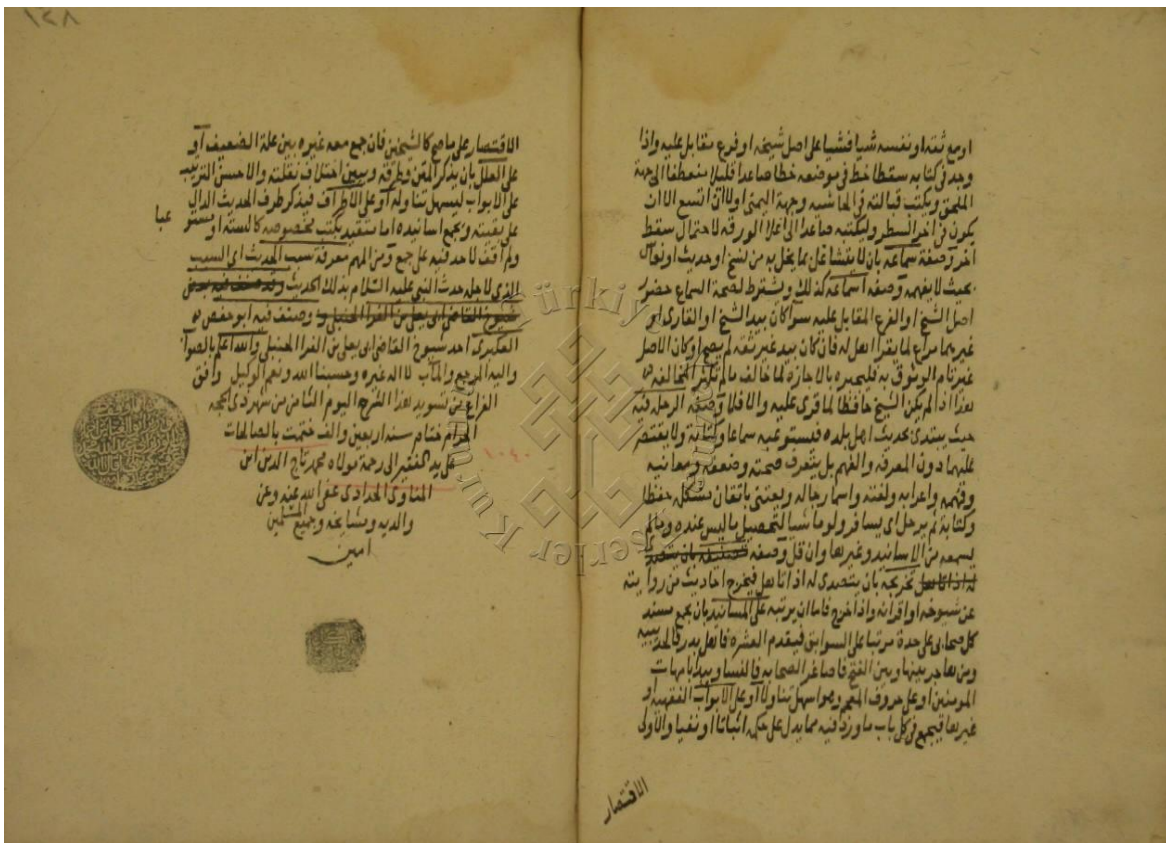 او مع ثقه او نفسه شيا فشيا على اصل شيخه او فرع مقابل عليه واذا
وجد فى كتابه سقطا خط فى موضعه خطا صاعدا قليلا منعطفا الى جهة
الملحق ويكتب قبالته فى الحاشيه وجهة اليمنى اولا ان اتسع الا ان
يكون فى اخر السطر وليكتبه صاعدا الى اعلا الورقه لاحتمال سقط
اخر وصفة سماعه بان لا يتشاغل بما يخل به من نسخ او حديث او نعاس
بحيث لا يفهمه وصفة اسماعه كذلك ويشترط لصحة السماع حضور
اصل الشيخ او الفرع المقابل عليه سوا كان بيد الشيخ او القارى او
غيرهما مراع لما يقرا اهل له فان كان بيد غير ثقه لم يصح او كان الاصل
غير تام الوثوق به فليجبره بالاجازه لما خالف مالم تكثر المخالفه
هذا اذا لم يكن الشيخ حافظا لما قرى عليه والا فلا وصفة الرحله فيه
حيث يبتدى بحديث اهل بلده فيستوعبه سماعا وكتابة ولا يقتصر
عليهما دون المعرفه والفهم بل يتعرف صحته وضعفه ومعانيه
وفقهه واعرابه ولغته واسما رجاله ويعتنى باتقان مشكله حفظا
وكتابة ثم يرحل اى يسافر ولو ماشيا لتحصيل ماليس عنده ومالم
يسمعه من الاسانيد وغيرها وان قل وصفة تصنيفه بان يتصدى
له اذا تاهل تخريجه بان يتصدى له اذا تاهل فيخرج احاديث من روايته
عن شيوخه او اقرانه واذا خرج فاما ان يرتبه على المسانيد بان يجمع مسند
كل صحابى على حدة مرتبا على السوابق فيقدم العشره فاهل بدر فالحديبيه
ومن هاجر بينها وبين الفتح فاصاغر الصحابه فالنسا ويبدا بامهات
المومنين او على حروف المعجم وهو اسهل تناولا او على الابواب الفقهيه او
غيرها فيجمع فى كل باب ما ورد فيه مما يدل على حكمه اثباتا او نفيا والاولى
الاقتصار
١٤٨
الاقتصار على ماصح كالشيخين فان جمع معه غيره بين علة الضعيف او
على العلل بان يذكر المتن وطرقه ويبين اختلاف نقلته والاحسن الترتيب
على الابواب ليسهل تناوله او على الاطراف فيذكر طرف الحديث الدال
على بقيته ويجمع اسانيده اما مستوعبا
او متقيدا بكتب مخصوصه كالسته
ولم اقف لاحد فيه على جمع ومن المهم معرفة سبب الحديث اى السبب
الذى لاجله حدث النبى عليه السلام بذلك الحديث وقد صنف فيه بعض
شيوخ القاضى ابى يعلى بن الفرا الحنبلى وصنف فيه ابو حفص
العكبرى احد شيوخ القاضى ابى يعلى بن الفرا الحنبلى والله اعلم بالصواب
واليه المرجع والمآب لا اله غيره وحسبنا الله ونعم الوكيل وافق
الفراغ من تسويد هذا الشرح اليوم الثامن من شهر ذى الحجه
الحرام ختام سنه اربعين والف ختمت بالصالحات
١٠٤٠
على يد الفقير الى رحمة مولاه محمد تاج الدين ابن
المناوى الحدادى عفى الله عنه وعن
والديه ومشايخه وجميع المسلمين
امين
Türkiye Yazma Eserler Kurumu